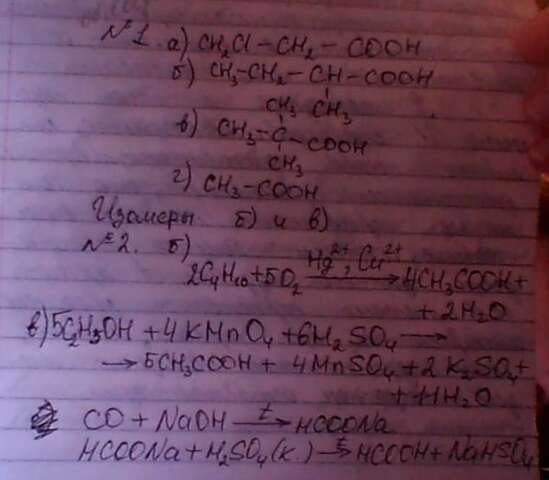 №1. а) CH₂Cl–CH₂–COOH
б) CH₃–CH₂–CH–COOH
CH₃ CH₃
в) CH₃–C–COOH
CH₃
г) CH₃–COOH
Изомеры б) и в)
№2. б)
2C₄H₁₀+5O₂ Hg²⁺, Cu²⁺→ 4CH₃COOH+
+2H₂O
в) 5C₂H₅OH + 4KMnO₄ + 6H₂SO₄ →
→ 5CH₃COOH + 4MnSO₄ + 2K₂SO₄+
+ 11H₂O
CO + NaOH t→ HCOONa
HCOONa + H₂SO₄(к.) t→ HCOOH + NaHSO₄